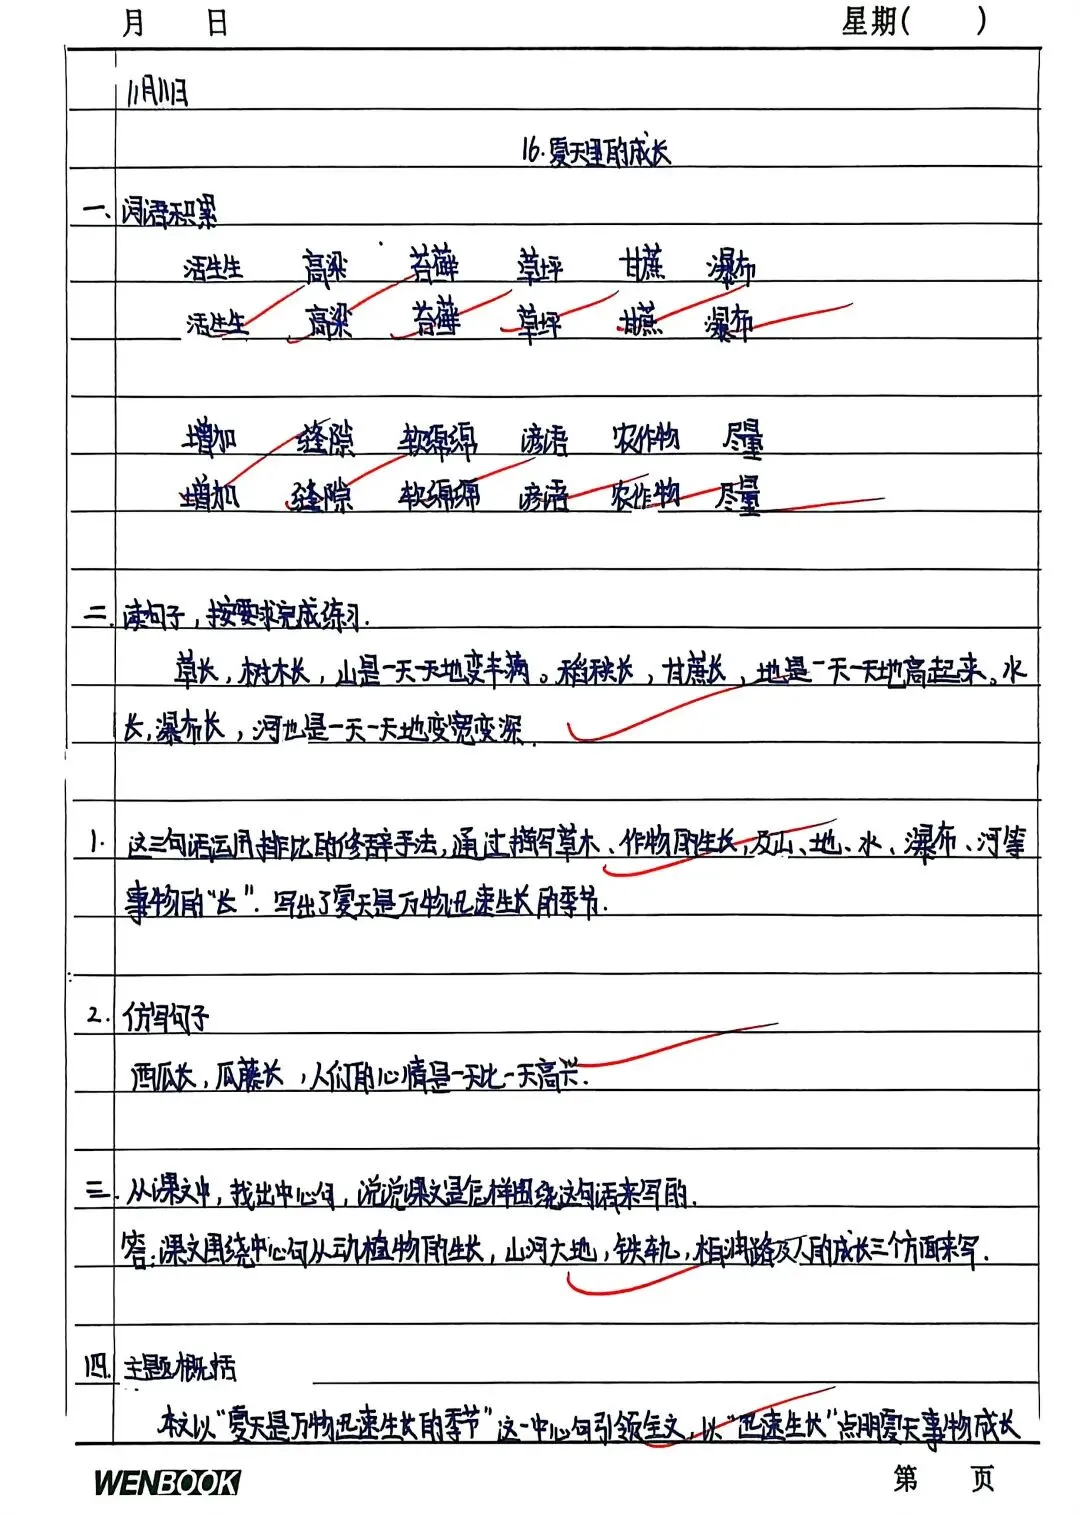 月 日 星期( )
11月11日
16.夏天里的成长
一、词语积累
活生生 高粱 苔藓 草坪 甘蔗 瀑布
活生生 高粱 苔藓 草坪 甘蔗 瀑布
增加 缝隙 软绵绵 谚语 农作物 尽量
增加 缝隙 软绵绵 谚语 农作物 尽量
二.读句子,按要求完成练习.
草长,树木长,山是一天一天地变丰满。稻秧长,甘蔗长,地是一天一天地高起来。水
长,瀑布长,河也是一天一天地变宽变深.
1.这三句话运用排比的修辞手法,通过描写草木、作物的生长,及山、地、水、瀑布、河等
事物的"长".写出了夏天是万物迅速生长的季节.
2.仿写句子
西瓜长,瓜藤长,人们的心情是一天比一天高兴.
三.从课文中,找出中心句,说说课文是怎样围绕这句话来写的.
答:课文围绕中心句从动植物的生长,山河大地,铁轨,柏油路及人的成长三个方面来写.
四.主题概括
本文以"夏天是万物迅速生长的季节"这一中心句引领全文,以"迅速生长"点明夏天事物成长
WENBOOK 第 页